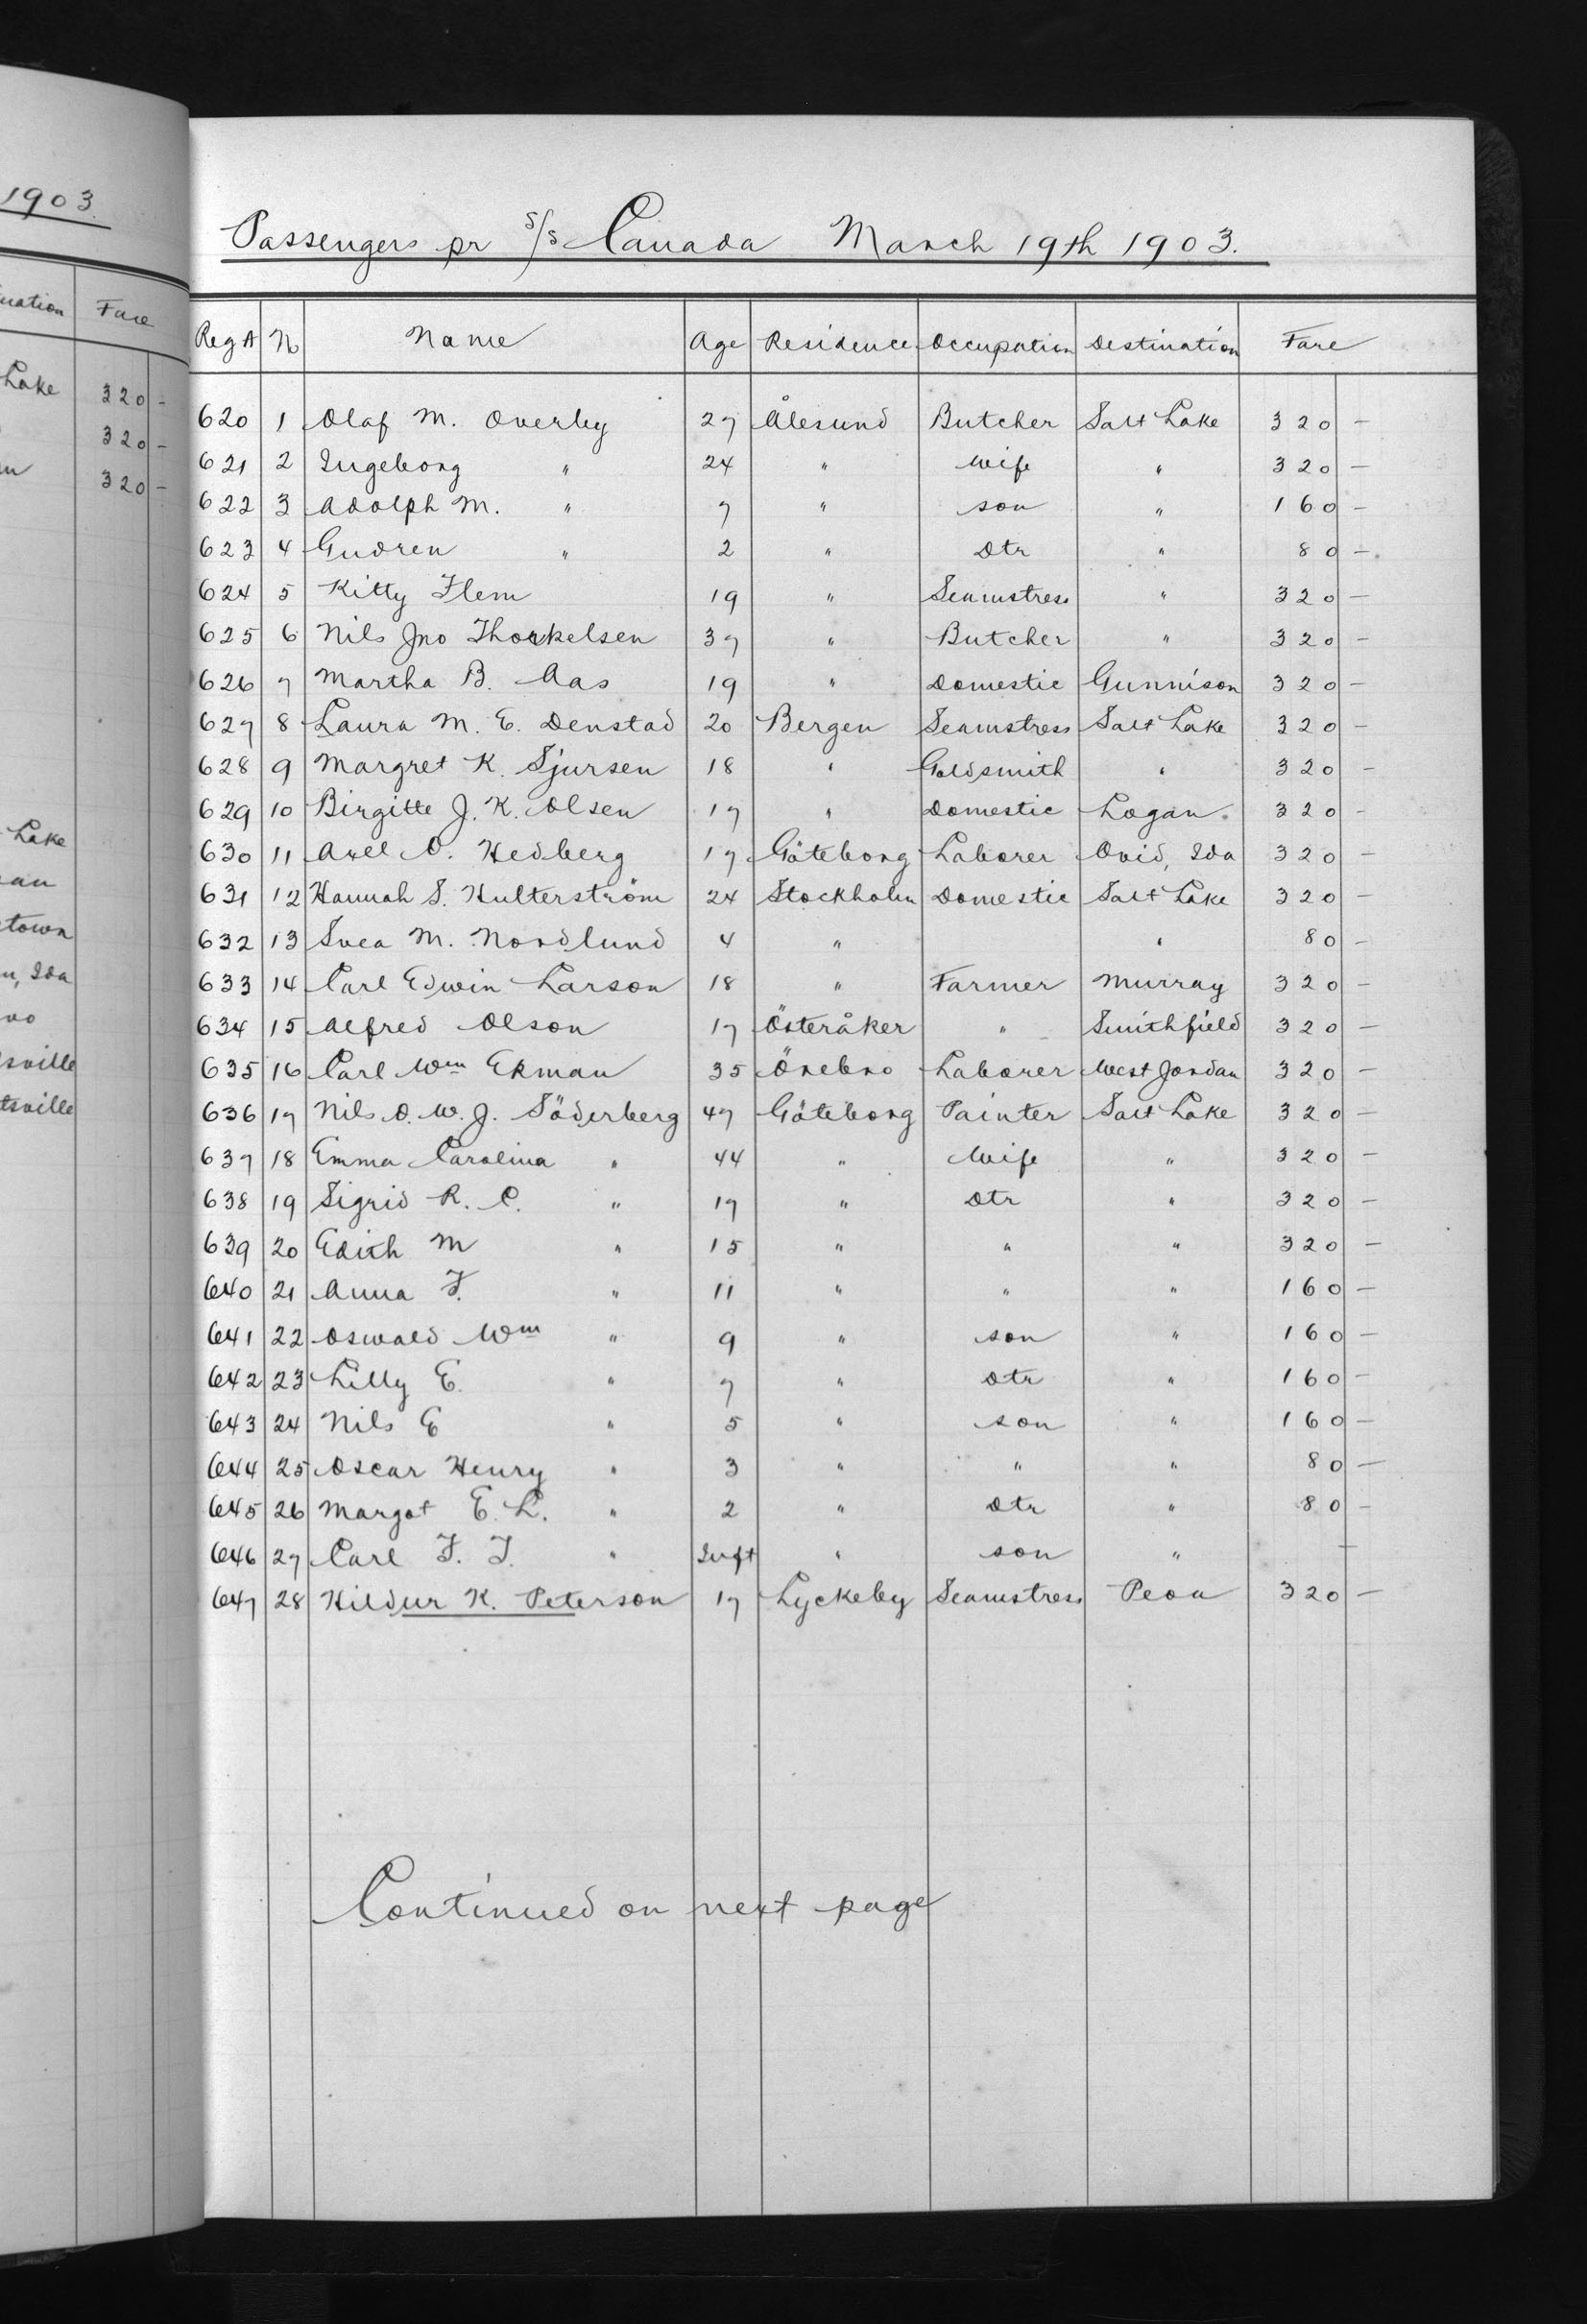 1903.
Fare
Lake 320 -
320 -
320 -
Lake
town
Ida
sville
tsville
Passengers pr S/S Canada March 19th 1903.
Reg A No Name Age Residence Occupation Destination Fare
620 1 Olaf M. Overby 27 Ålesund Butcher Salt Lake 320 -
621 2 Ingeborg " 24 " Wife " 320 -
622 3 Adolph M. " 7 " son " 160 -
623 4 Gudren " 2 " Dtr " 80 -
624 5 Kitty Flem 19 " Seamstress " 320 -
625 6 Nils Jno Thorkelsen 37 " Butcher " 320 -
626 7 Martha B. Aas 19 " Domestic Gunnison 320 -
627 8 Laura M. E. Denstad 20 Bergen Seamstress Salt Lake 320 -
628 9 Margret K. Sjursen 18 " Goldsmith " 320 -
629 10 Birgitte J. K. Olsen 17 " Domestic Logan 320 -
630 11 Axel O. Hedberg 17 Göteborg Laborer Ovid, Ida 320 -
631 12 Hannah S. Hulterström 24 Stockholm Domestic Salt Lake 320 -
632 13 Svea M. Nordlund 4 " " 80 -
633 14 Carl Edwin Larson 18 " Farmer Murray 320 -
634 15 Alfred Olson 17 Österåker " Smithfield 320 -
635 16 Carl Wm Ekman 35 Örebro Laborer West Jordan 320 -
636 17 Nils O. W. J. Söderberg 47 Göteborg Painter Salt Lake 320 -
637 18 Emma Carolina " 44 " Wife " 320 -
638 19 Sigrid R. C. " 17 " Dtr " 320 -
639 20 Edith M " 15 " " " 320 -
640 21 Anna F. " 11 " " " 160 -
641 22 Oswald Wm " 9 " son " 160 -
642 23 Lilly E. " 7 " Dtr " 160 -
643 24 Nils E " 5 " son " 160 -
644 25 Oscar Henry " 3 " " " 80 -
645 26 Margot E. L. " 2 " Dtr " 80 -
646 27 Carl F. T. " Inft " son " -
647 28 Hildur K. Peterson 17 Lyckeby Seamstress Peoa 320 -
Continued on next page